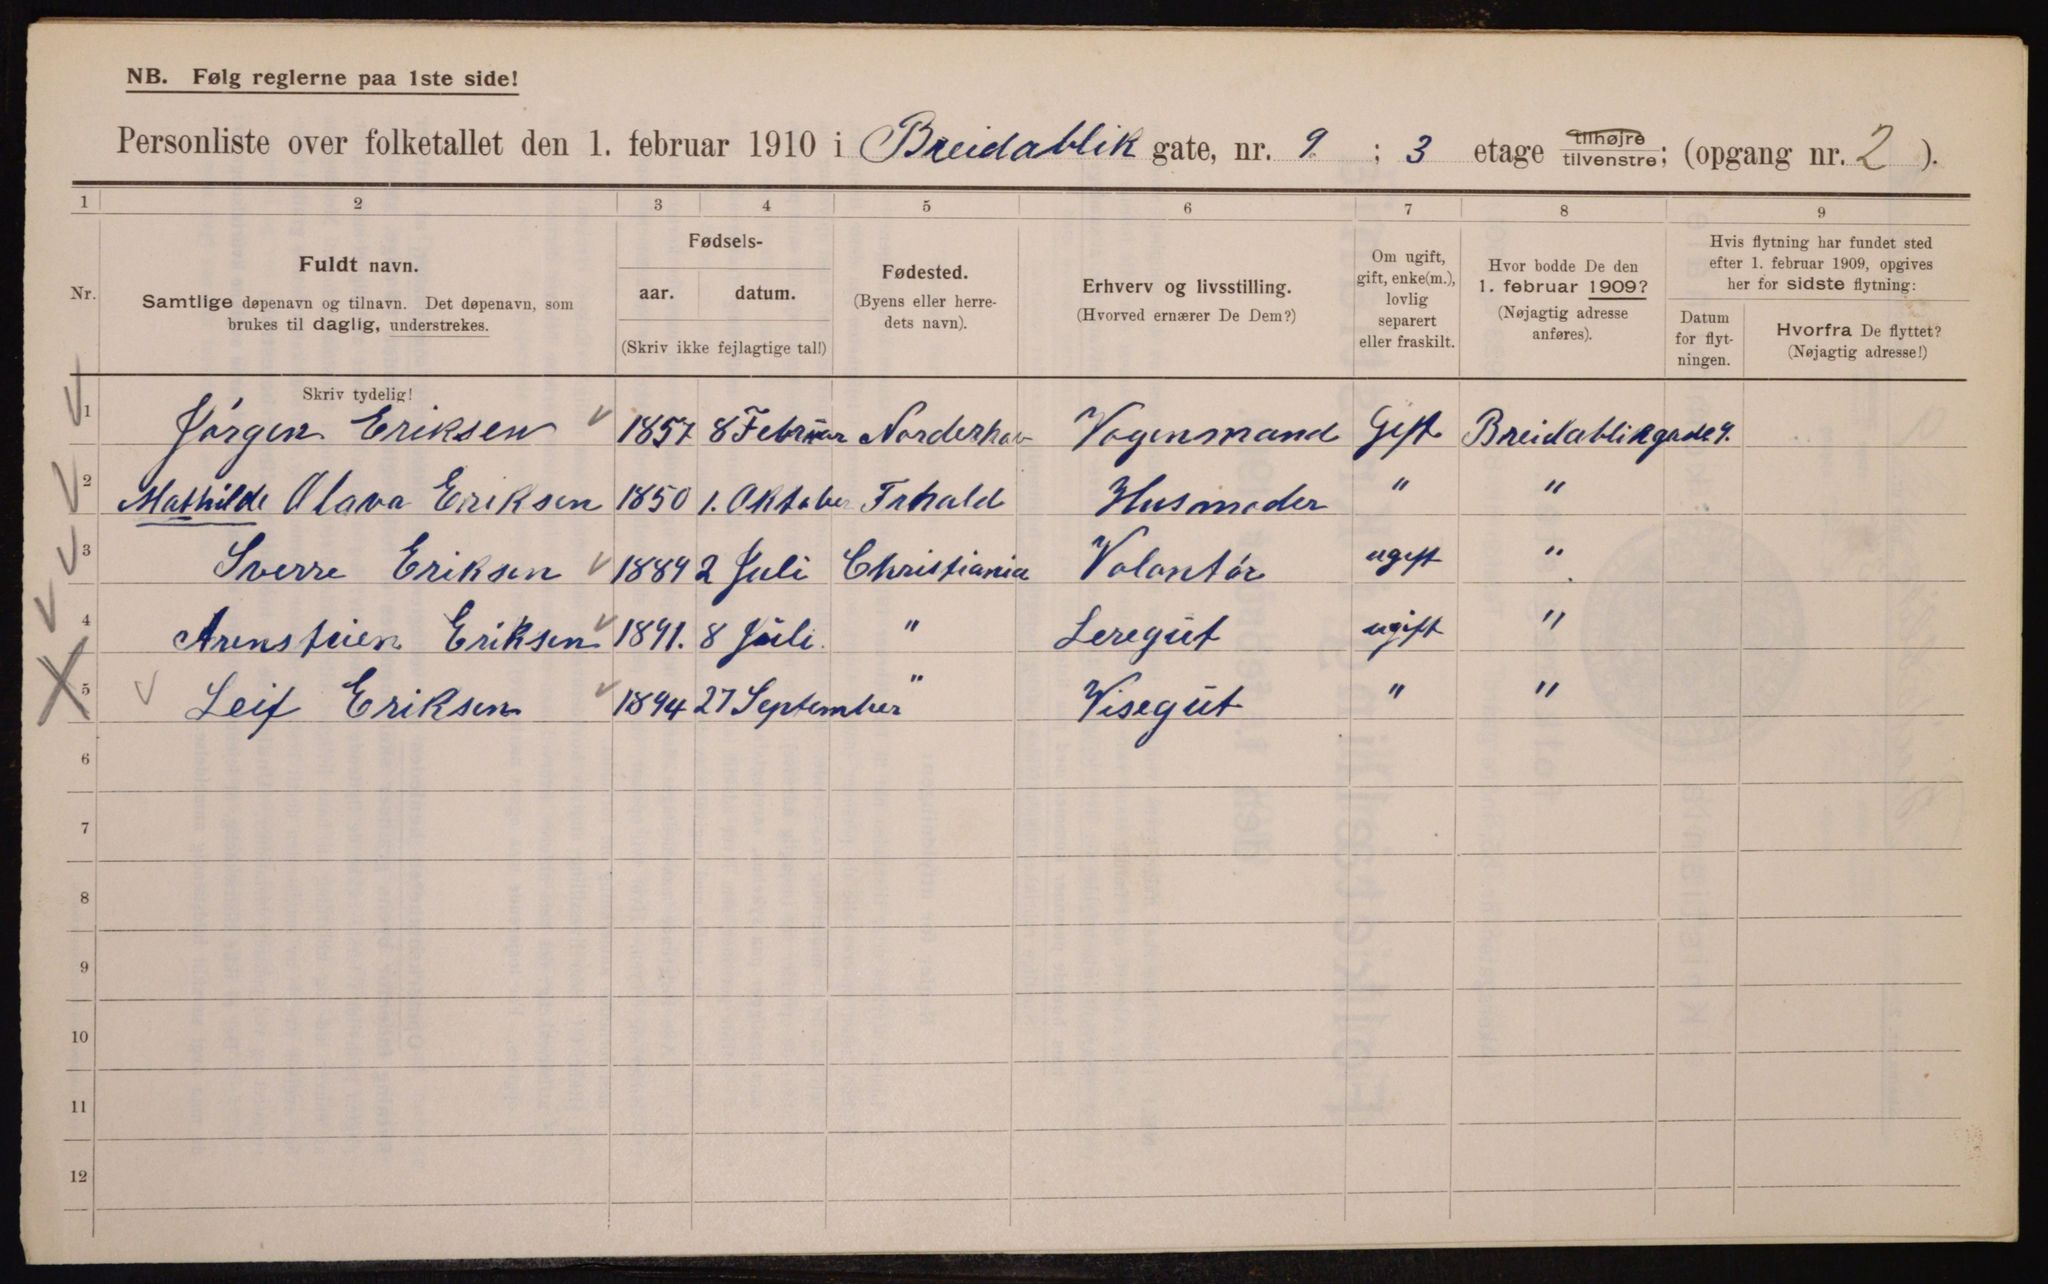 NB. Følg reglerne paa 1ste side!
Personliste over folketallet den 1. februar 1910 i Breidablik gate, nr. 9 ; 3 etage tilhøjre tilvenstre; (opgang nr. 2 ).
1 2 3 4 5 6 7 8 9
Nr.
Fuldt navn.
Samtlige døpenavn og tilnavn. Det døpenavn, som
brukes til daglig, understrekes.
Fødsels-
aar. datum.
(Skriv ikke fejlagtige tal!)
Fødested.
(Byens eller herre-
dets navn).
Erhverv og livsstilling.
(Hvorved ernærer De Dem?)
Om ugift,
gift, enke(m.),
lovlig
separert
eller fraskilt.
Hvor bodde De den
1. februar 1909?
(Nøjagtig adresse
anføres).
Hvis flytning har fundet sted
efter 1. februar 1909, opgives
her for sidste flytning:
Datum
for flyt-
ningen.
Hvorfra De flyttet?
(Nøjagtig adresse!)
Skriv tydelig!
1 Jørgen Eriksen 1857 8 Februar Norderhov Vognmand Gift Breidablikgade 9.
2 Mathilde Olava Eriksen 1850 1. Oktober Frhald Husmoder " "
3 Sverre Eriksen 1889 2 Juli Christiania Volontør ugift "
4 Arenstein Eriksen 1891. 8 Juli. " Leregut ugift "
5 Leif Eriksen 1894 27 September " Visegut " "
6
7
8
9
10
11
12